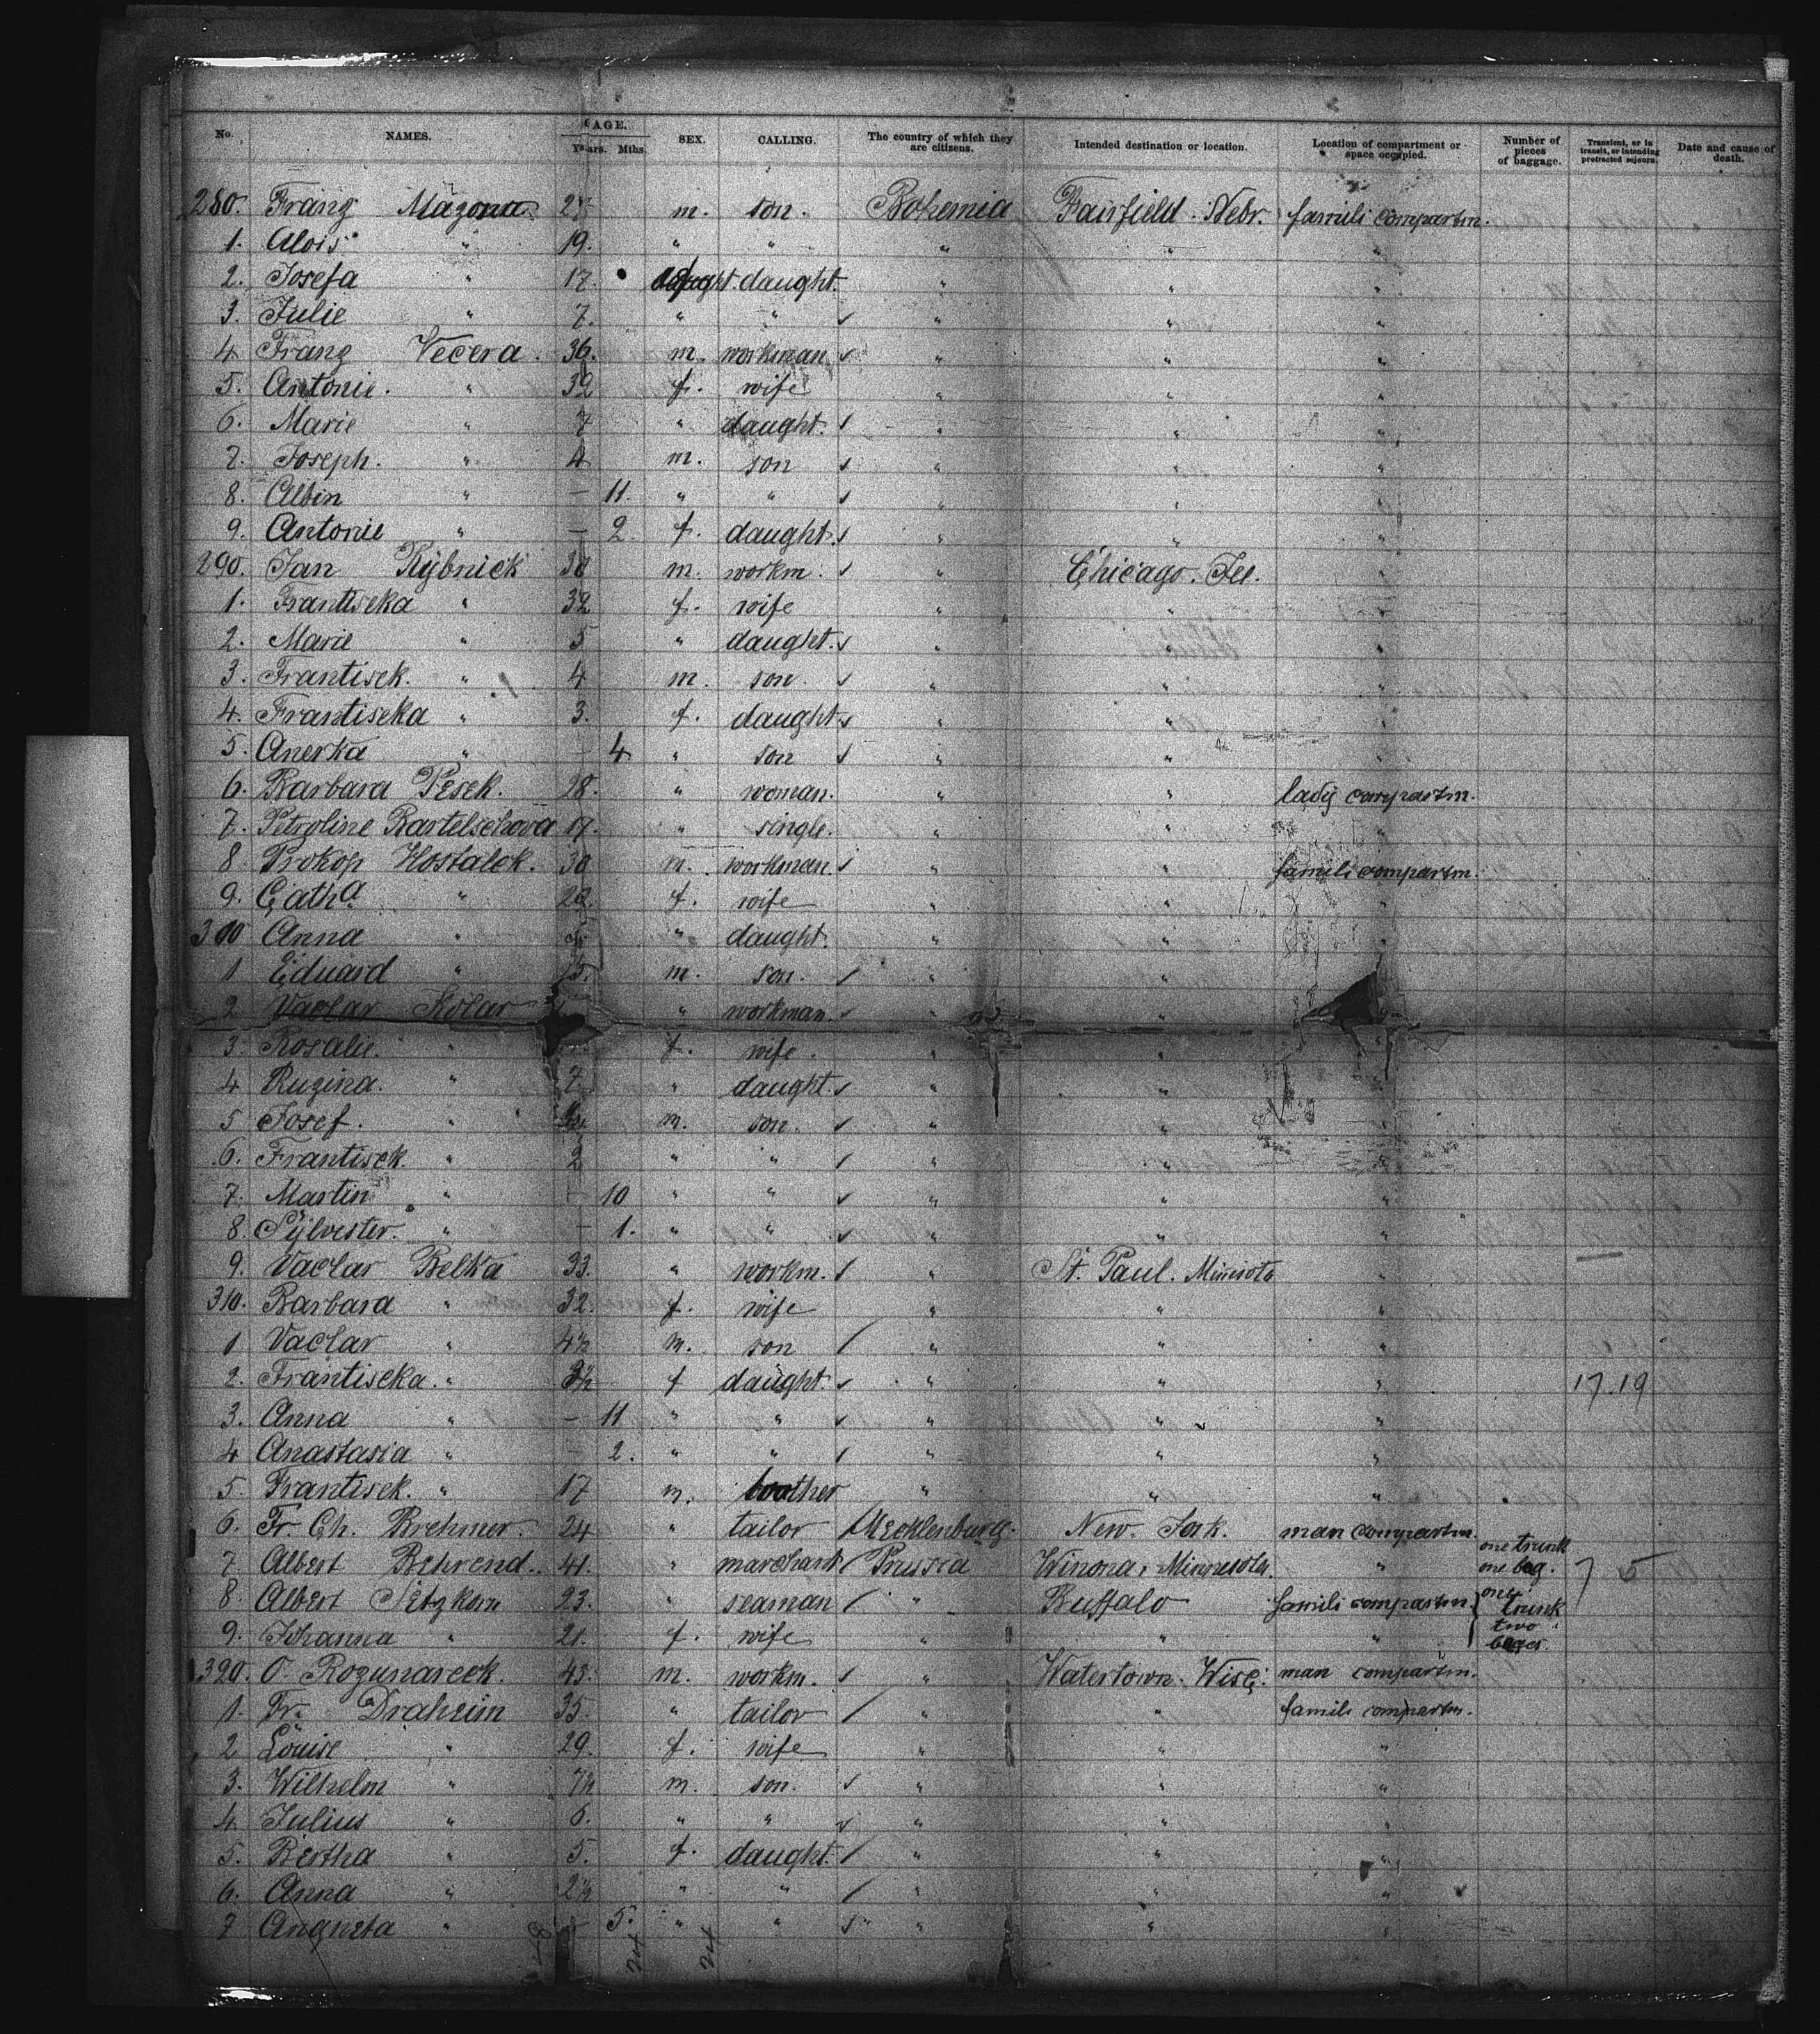 No. NAMES. AGE. Years. Mths. SEX. CALLING. The country of which they are citizens. Intended destination or location. Location of compartment or space occupied. Number of pieces of baggage. Transient, or in transit, or intending protracted sojourn. Date and cause of death.
280. Franz m. son. Bohemia Fairfield. Nebr. famili compartm.
1. Alois " 19. " " " " "
2. Josefa " 17. daught. " " "
3. Julie " 7. " " " " "
4 Franz Vecera. 36. m. workman " " "
5. Antonie. " 32 f. wife " " "
6. Marie " 7 " daught. " " "
7. Joseph. " 4 m. son " " "
8. Albin " – 11. " " " " "
9. Antonie " – 2. f. daught. " " "
290. Jan Rÿbnick m. workm. " Chicago. Ill. "
1. Frantiseka " 32 f. wife " " "
2. Marie " 5 " daught. " " "
3. Frantisek. " 4 m. son. " " "
4. Frantiseka " 3. f. daught. " " "
5. Anerka " – 4 " son " " "
6. Barbara Pesek. 28. " woman. " " ladÿ compartm.
7. Petroline Bartelschova 17. " single. " " "
8. Prokop Hostalek. 30 m. workman. " " famili compartm.
9. Catha " f. wife " " "
300 Anna " " daught. " " "
1 Eduard " m. son. " " "
2 Vaclav Kolar " workman. " "
3. Rosalie. " f. wife. " " "
4 Ruzina. " 7. " daught. " " "
5 Josef. " m. son. " " "
6. Frantisek. " 2 " " " " "
7. Martin " – 10 " " " " "
8. Sÿlvester. " – 1. " " " " "
9. Vaclav Belka 33. " workm. " St. Paul. Minnisota "
310. Barbara " 32. f. wife " " "
1 Vaclav " 4½ m. son " " "
2. Frantiseka. " 3½ f daught. " " " 17.19
3. Anna " – 11 " " " " "
4 Anastasia " – 2. " " " " "
5. Frantisek. " 17 m. brother " " "
6. Fr. Ch. Brehmer. 24 " tailor Mecklenburg. New. York. man compartm.
7 Albert Behrend. 41. " marchant Prussia Winona, Minnesota. " one trunk one bag. 7 5
8. Albert 23. " seaman " Buffalo famili compartm. one trunk
9. Johanna " 21. f. wife " " " two bages.
320. O. Rozunareck. 43. m. workm. " Watertown. Wisc. man compartm.
1. Fr. Draheim 35. " tailor " " famili compartm.
2 Louise " 29. f. wife " " "
3. Wilhelm " 7½ m. son. " " "
4 Julius " 6. " " " " "
5. Bertha " 5. f. daught. " " "
6. Anna " 2½ " " " " "
7 " – 5. " " " " "
24 24